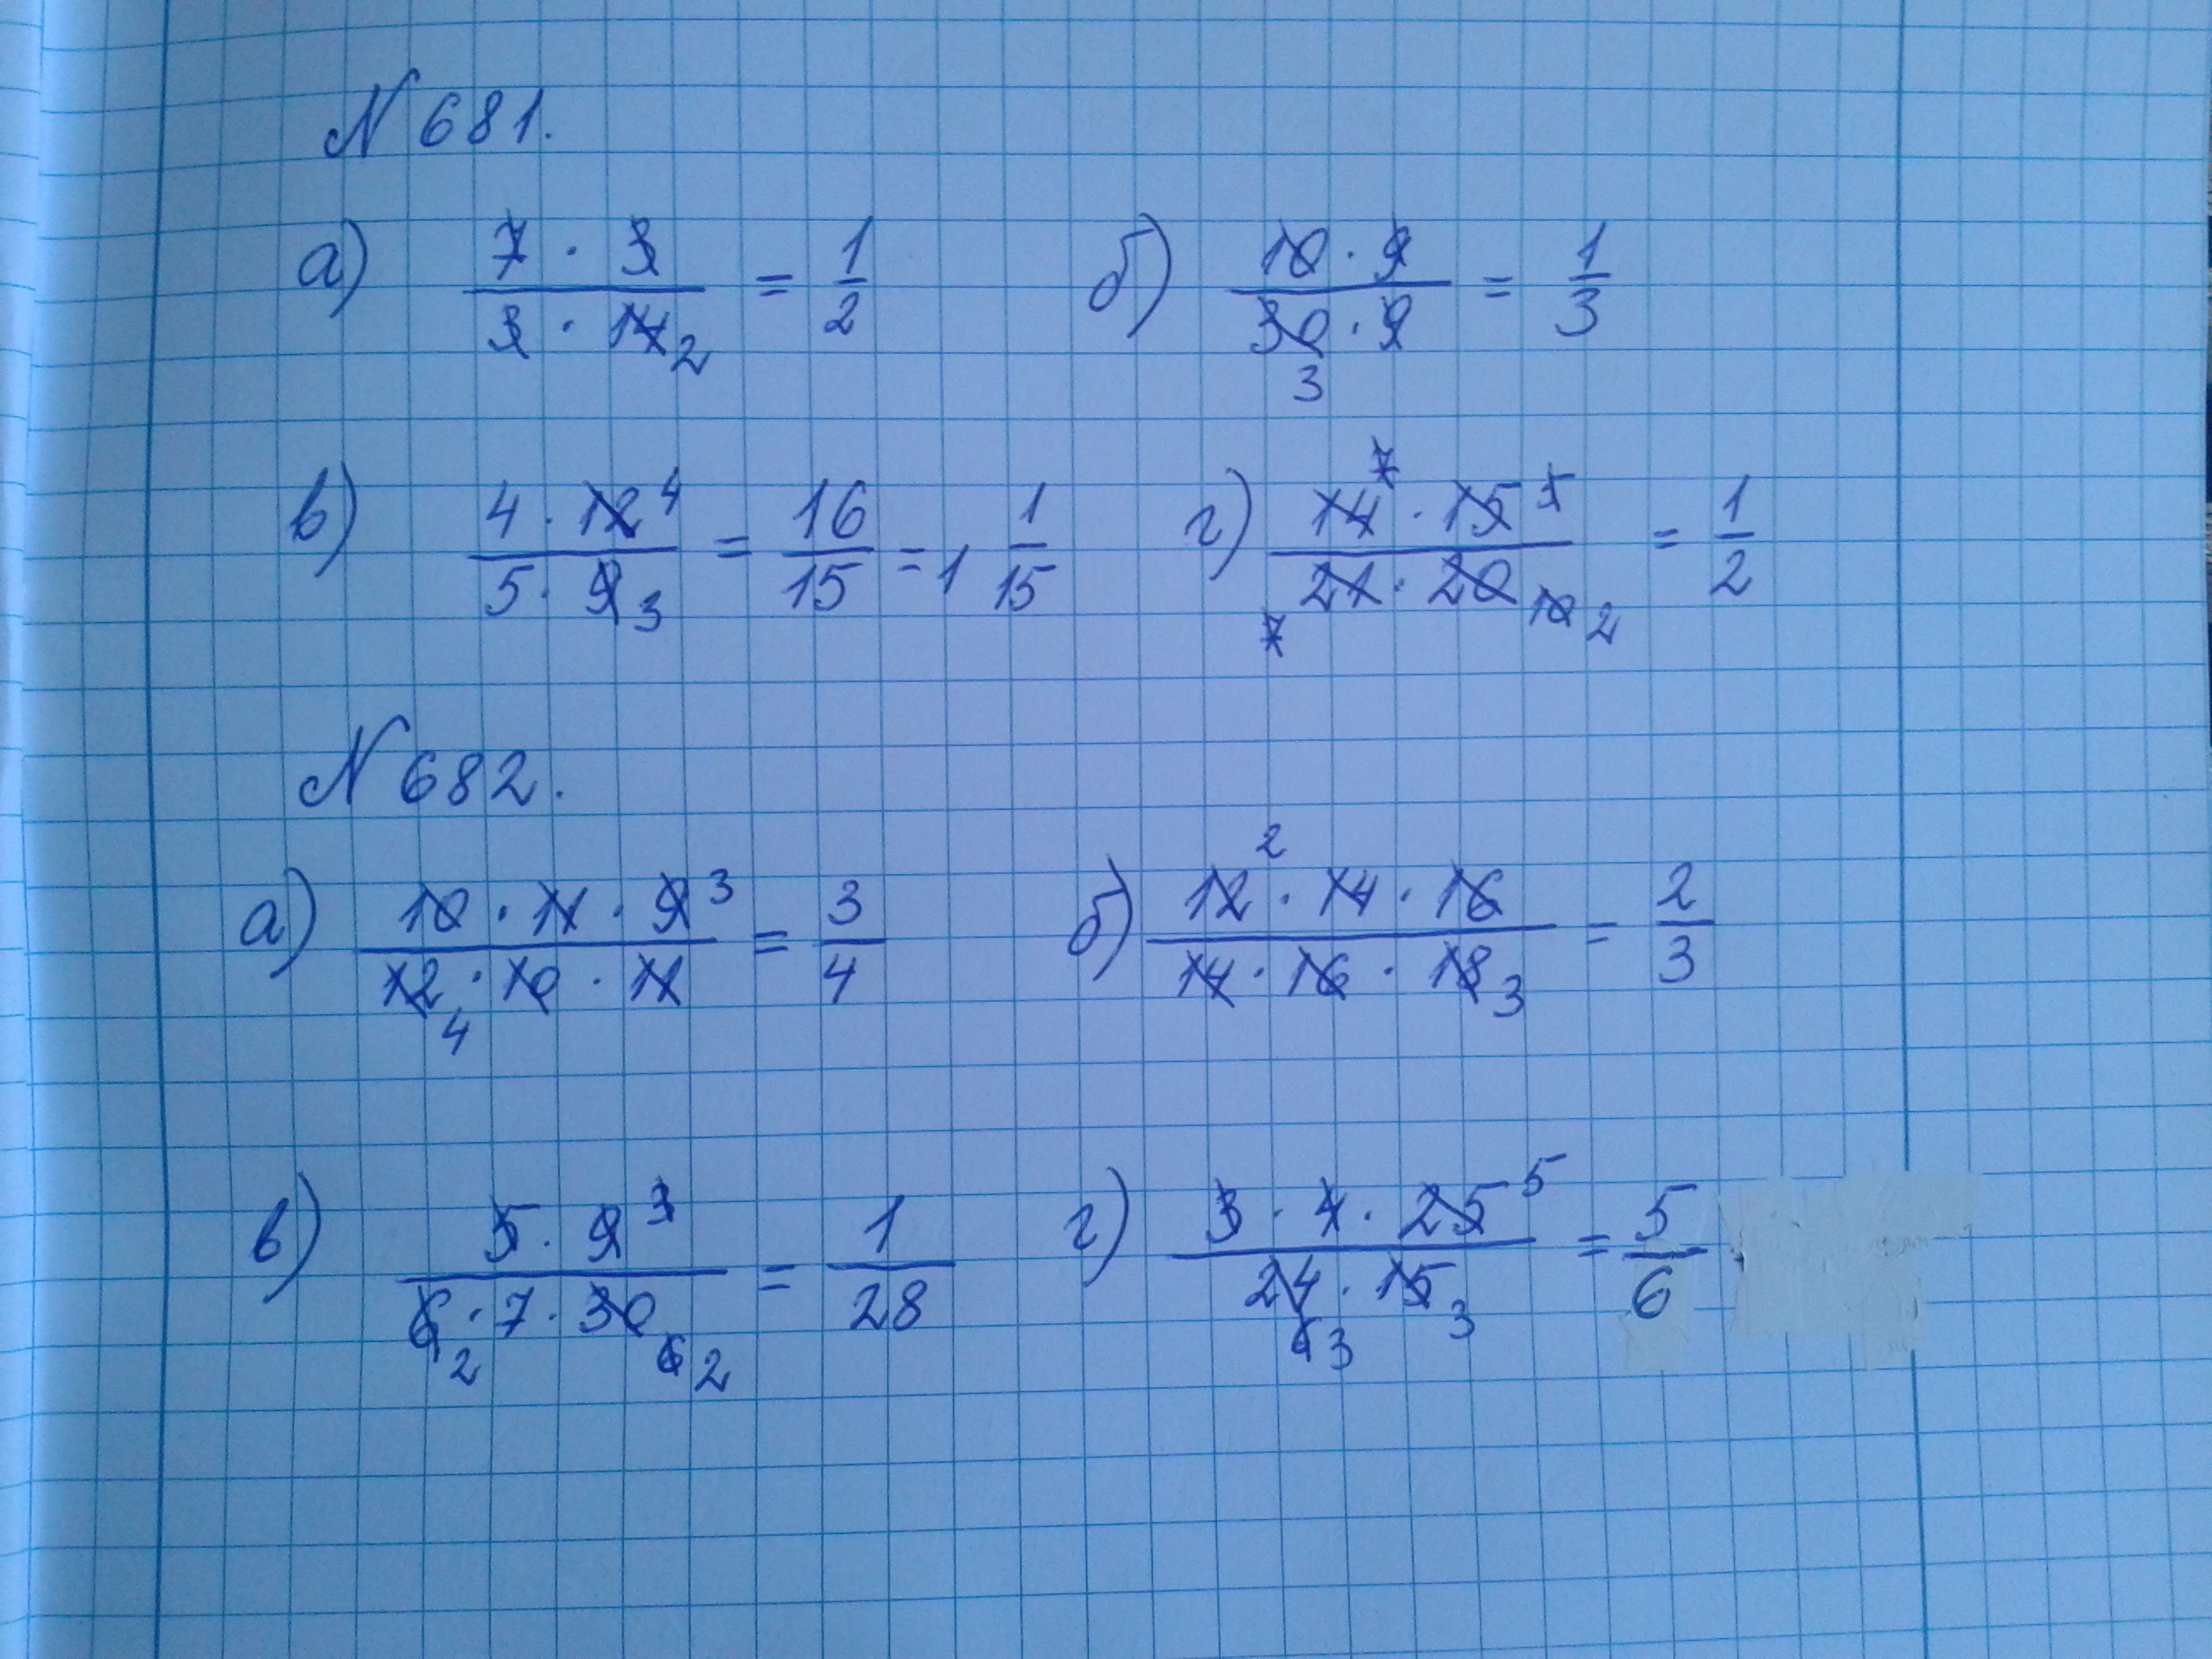 N 681.
а) 7 · 3 / 3 · 14 2 = 1/2 б) 10 · 9 / 30 · 9 3 = 1/3
в) 4 · 12 4 / 5 · 9 3 = 16/15 = 1 1/15 г) 14 7 · 15 5 / 21 7 · 20 10 2 = 1/2
N 682.
а) 10 · 11 · 9 3 / 12 4 · 10 · 11 = 3/4 б) 12 2 · 14 · 16 / 14 · 16 · 18 3 = 2/3
в) 5 · 9 3 / 6 2 · 7 · 30 6 2 = 1/28 г) 3 · 4 · 25 5 / 24 6 3 · 15 3 = 5/6